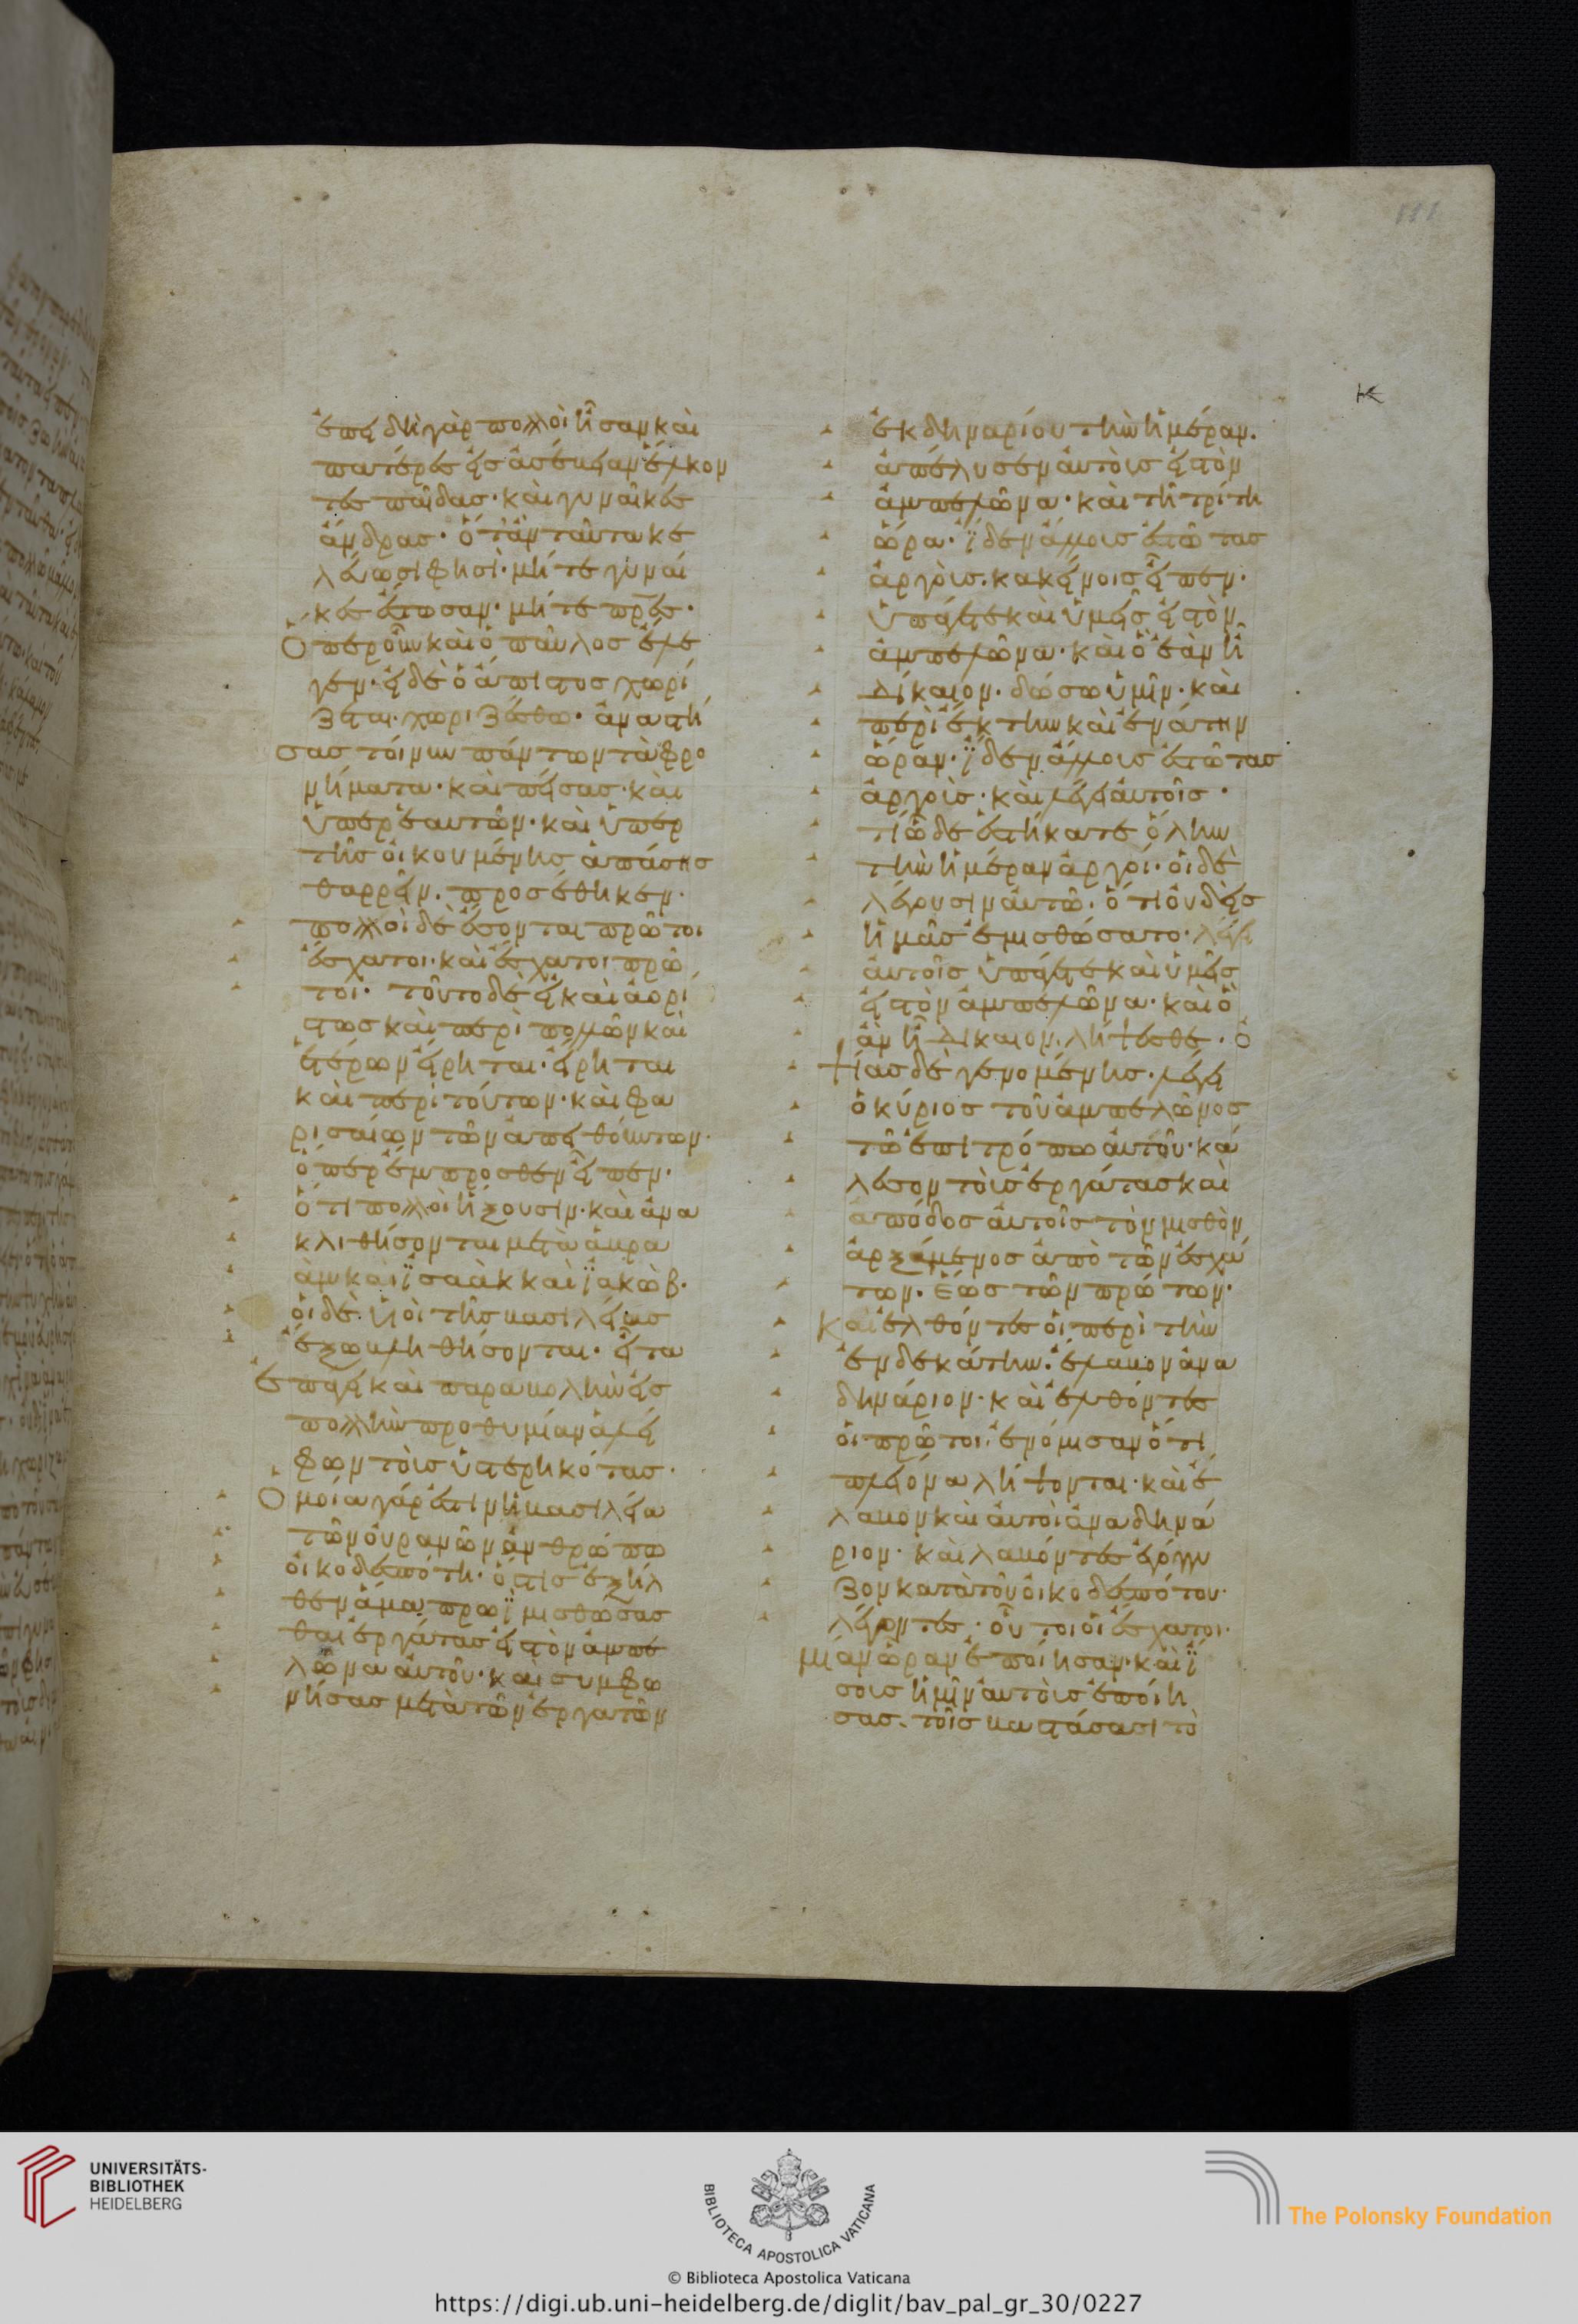 111
κ
ἐπειδὴ γὰρ πολλοὶ ἦσαν καὶ
πατέρες εἰς ἀσέβειαν ἕλκον
τες παῖδας· καὶ γυναῖκες
ἄνδρας· ὅτ' ἂν ταῦτα κε
λεύωσι φησὶ· μήτε γυναῖ
κες ἔστωσαν· μήτε πρ̅ες·
Ὅπερ οὖν καὶ ὁ παῦλος ἔλε
γεν· εἰ δὲ ὁ ἄπιστος χωρί
ζεται· χωριζέσθω· ἀναστή
σας τοίνυν πάντων τὰ φρο
νήματα· καὶ πείσας· καὶ
ὑπὲρ ἑαυτῶν· καὶ ὑπὲρ
τῆς οἰκουμένης ἁπάσης
θαρρεῖν· προσέθηκεν·
πολλοὶ δὲ ἔσονται πρῶτοι
ἔσχατοι· καὶ ἔσχατοι πρῶ
τοι· τοῦτο δὲ εἰ καὶ ἀορί
στως καὶ περὶ πολλῶν καὶ
ἑτέρων εἴρηται· εἴρηται
καὶ περὶ τούτων· καὶ φα
ρισαίων τῶν ἀπειθούντων·
ὅπερ ἔμπροσθεν εἶπεν·
ὅτι πολλοὶ ἥξουσιν· καὶ ἀνα
κλιθήσονται μετὰ ἀβρα
ὰμ καὶ ἰσαὰκ καὶ ἰακὼβ·
οἱ δὲ υἱοὶ τῆς βασιλείας
ἔξω βληθήσονται· εἶτα
ἐπάγει καὶ παραβολὴν εἰς
πολλὴν προθυμίαν ἀλεί
φων τοὺς ὑστερηκότας·
Ὁμοία γάρ ἐστιν ἡ βασιλεία
τῶν οὐρανῶν ἀνθρώπω
οἰκοδεσπότη· ὅστις ἐξῆλ
θεν ἅμα πρωῒ μισθώσασ
θαι ἐργάτας εἰς τὸν ἀμπε
λῶνα αὐτοῦ· καὶ συμφω
νήσας μετὰ τῶν ἐργατῶν
ἐκ δηναρίου τὴν ἡμέραν·
ἀπέλυσεν αὐτοὺς εἰς τὸν
ἀμπελῶνα· καὶ τῆ τρίτη
ὥρα· ἴδεν ἄλλους ἑστῶτας
ἀργούς· κακείνοις εἶπεν·
ὑπάγετε καὶ ὑμεῖς εἰς τὸν
ἀμπελῶνα· καὶ ὃ ἐὰν ἦ
δίκαιον· δώσω ὑμῖν· καὶ
περὶ ἕκτην καὶ ἐνάτην
ὥραν· ἴδεν ἄλλους ἑστῶτας
ἀργοὺς· καὶ λέγει αὐτοῖς·
τί ὧδε ἑστήκατε ὅλην
τὴν ἡμέραν ἀργοί· οἱ δὲ
λέγουσιν αὐτῶ· ὅτι οὐδεὶς
ἡμᾶς ἐμισθώσατο· λέγει
αὐτοῖς ὑπάγετε καὶ ὑμεῖς
εἰς τὸν ἀμπελῶνα· καὶ ὃ
ἂν ἦ δίκαιον· λήψεσθε· ὀ
ψίας δὲ γενομένης· λέγει
ὁ κύριος τοῦ ἀμπελῶνος
τῶ ἐπιτρόπω αὐτοῦ· κά
λεσον τοὺς ἐργάτας καὶ
ἀπόδος αὐτοῖς τὸν μισθὸν
ἀρξάμενος ἀπὸ τῶν ἐσχά
των· ἕως τῶν πρώτων·
Καὶ ἐλθόντες οἱ περὶ τὴν
ἑνδεκάτην· ἔλαβον ἀνὰ
δηνάριον· καὶ ἐλθόντες
οἱ πρῶτοι· ἐνόμισαν ὅτι
πλείονα λήψονται· καὶ ἔ
λαβον καὶ αὐτοὶ ἀνὰ δηνά
ριον· καὶ λαβόντες ἐγόγγυ
ζον κατὰ τοῦ οἰκοδεσπότου·
λέγοντες· οὗτοι οἱ ἔσχατοι·
μίαν ὥραν ἐποίησαν· καὶ ἴ
σους ἡμῖν αὐτοὺς ἐποίη
σας· τοῖς βαστάσασι τὸ
UNIVERSITÄTS-
BIBLIOTHEK
HEIDELBERG
BIBLIOTECA APOSTOLICA VATICANA
The Polonsky Foundation
© Biblioteca Apostolica Vaticana
https://digi.ub.uni-heidelberg.de/diglit/bav_pal_gr_30/0227